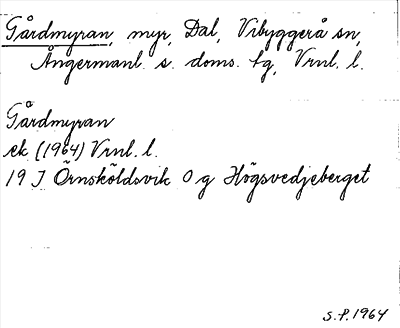 Gårdmyran, myr, Dal, Vibyggerå sn,
Ångermanl. s. doms. tg, Vrnl. l.
Gårdmyran
ek. (1964) Vrnl. l.
19 J Örnsköldsvik 0 g Högsvedjeberget
S.P. 1964